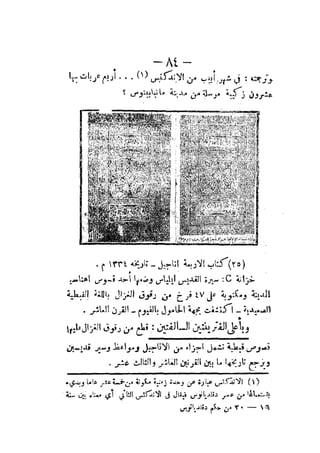 — ٨٤ —
وترجمته : فى شهر أبيب من الاندكتيس (١) ... أربع عربات بها
عشرون زكيبة مرسلة من مدينة
(٢٥) كتاب الاربعة اناجيل - تاريخه ١٣٣٤ م .
خزانة C : سيرة القديس ايلياس وضعها أحد قسوس
المدينة ومكتوبة على ٤٧ فرخ من رقوق الغزال باللغة القبطية
الصعيدية - اكتشفت بجهة الحامول بالفيوم - القرن العاشر .
وبأعلى الفترينتين السالفتين : قطع من رقوق الغزال عليها
نصوص قبطية تشمل اجزاء من الاناجيل ومواعظ وسير قديسين
ويرجع تاريخها ما بين القرنين العاشر والثالث عشر .
(١) الاندكتس عبارة عن وحدة زمنية مكونة من خمسة عشر عاما وبدىء
باستعمالها من عصر دقلديانوس فيقال فى الاندكتس الثانى أى معناه بين سنة
١٦ — ٣٠ من حكم دقلديانوس